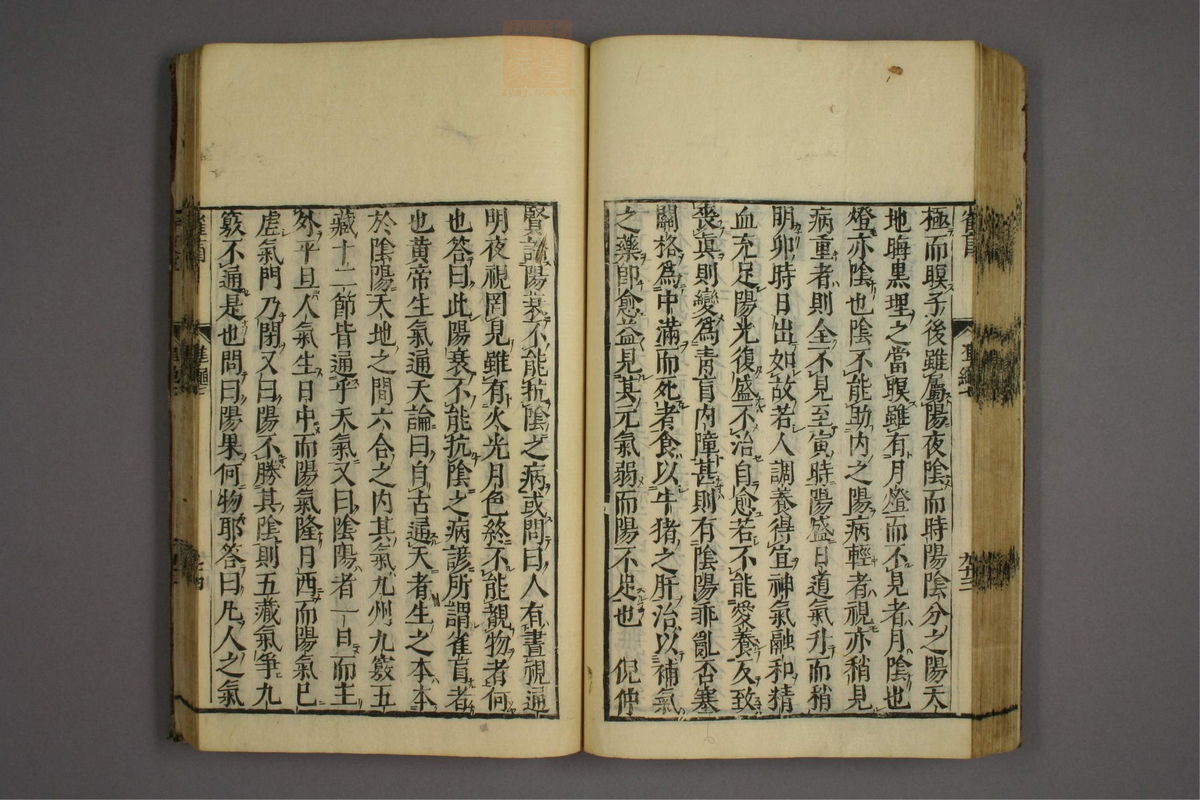 極而瞑子後雖屬陽夜陰而時陽陰分之陽天
地晦黒理之當瞑雖有月燈而不見者月陰也
燈亦陰也陰不能助内之陽病輕者視亦稍見
病重者則全不見至寅時陽盛日道氣升而稍
明卯時日出如故若人調養得宜神氣融和精
血充足陽光復盛不治自愈若不能愛養反致
喪眞則變爲青盲内障甚則有陰陽乖亂否塞
關格爲中滿而死者食以牛猪之肝治以補氣
之藥即愈益見其元氣弱而陽不足也　倪仲
賢論陽衰不能抗陰之病或問曰人有晝視通
明夜視罔見雖有火光月色終不能覩物者何
也答曰此陽衰不能抗陰之病諺所謂雀盲者
也黄帝生氣通天論曰自古通天者生之本本
於陰陽天地之間六合之内其氣九州九竅五
藏十二節皆通乎天氣又曰陰陽者一日而主
外平旦人氣生日中而陽氣隆日西而陽氣已
虚氣門乃閉又曰陽不勝其陰則五藏氣爭九
竅不通是也問曰陽果何物耶答曰凡人之氣